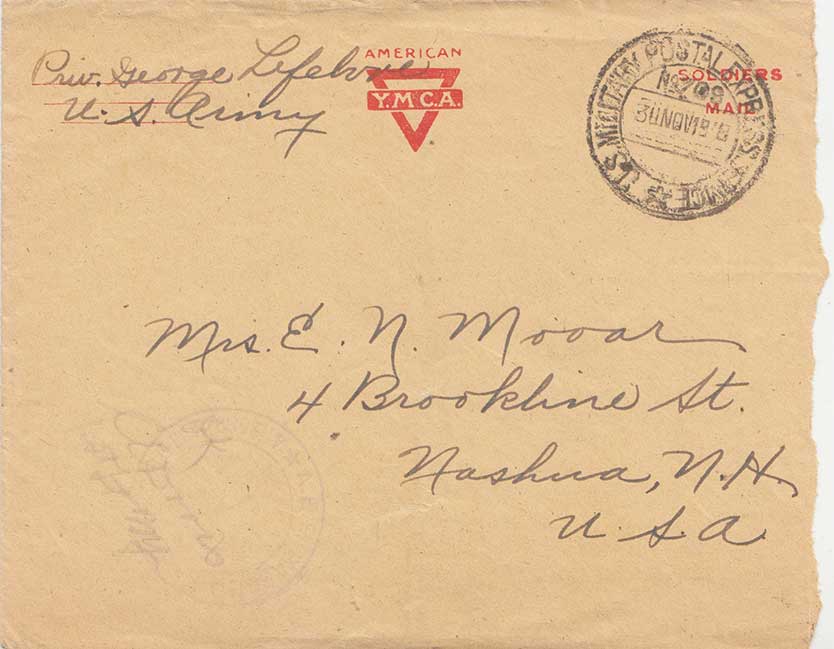 Priv. George Lefebvre
U. S. Army
AMERICAN
Y.M.C.A.
SOLDIERS
MAIL
U.S. MILITARY POSTAL EXPRESS SERVICE
30 NOV 1918
Mrs. E. N. Mooar
4 Brookline St.
Nashua, N.H.
U.S.A.